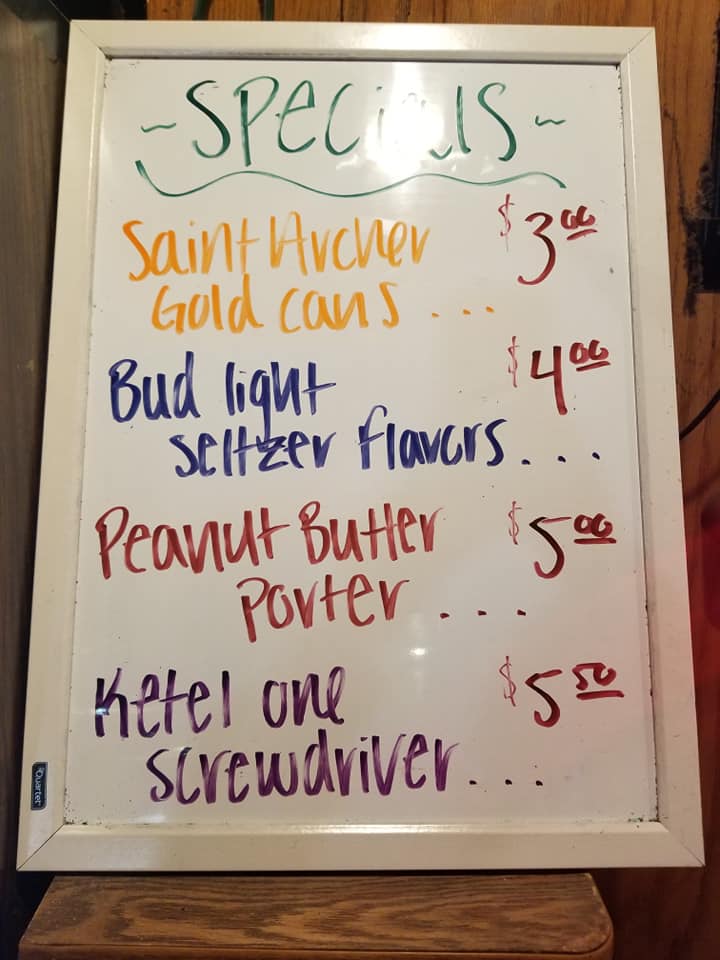 ~SPECIALS~
Saint Archer $3.00
Gold cans ...
Bud light $4.00
seltzer flavors...
Peanut Butter $5.00
Porter ...
Ketel one $5.50
screwdriver...
Quartet